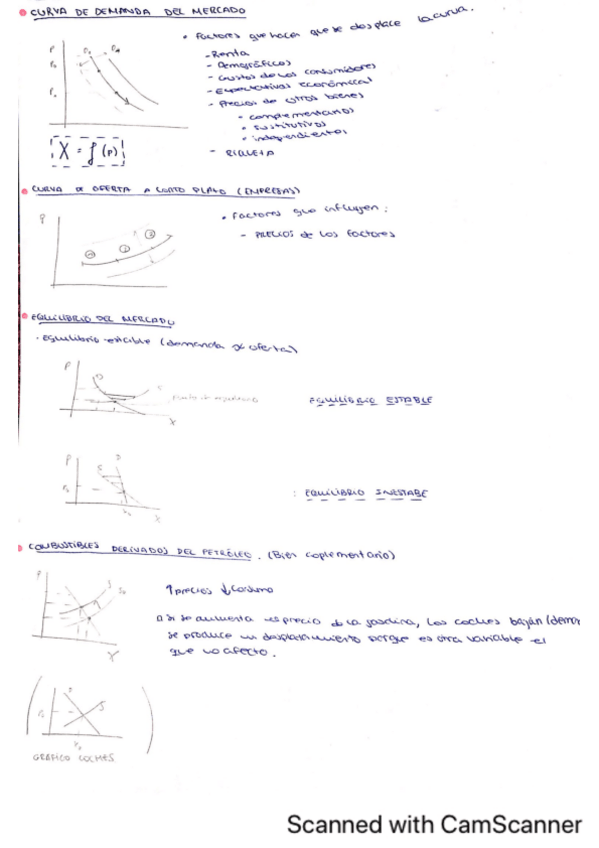 CURVA DE DEMANDA DEL MERCADO
• Factores que hacen que se desplace la curva.
- Renta
- Demográficos
- Gustos de los consumidores
- Expectativas económicas
- Precios de otros bienes
• complementarios
• sustitutivos
• independientes
- RIQUEZA
P
X = f(P)
CURVA DE OFERTA A CORTO PLAZO (EMPRESAS)
• Factores que influyen:
- PRECIOS de los factores
P
EQUILIBRIO DEL MERCADO
· Equilibrio estable (demanda y oferta)
P
D
X
EQUILIBRIO ESTABLE
P
D
S
X
: EQUILIBRIO INESTABE
COMBUSTIBLES DERIVADOS DEL PETRÓLEO. (Bien coplementario)
P
S
X
↑precios ↓consumo
si se aumenta el precio de la gasolina, los coches bajan (demor
se produce un desplazamiento porque es otra variable el
que lo afecto.
S
GRÁFICO COCHES.
Scanned with CamScanner